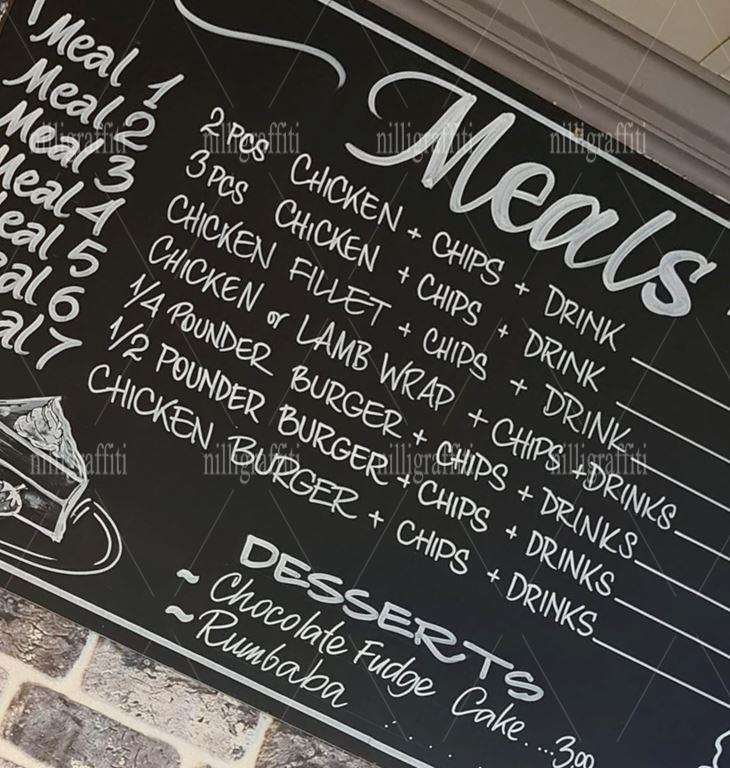 Meals
Meal 1 2 PCS CHICKEN + CHIPS + DRINK
Meal 2 3 PCS CHICKEN + CHIPS + DRINK
Meal 3 CHICKEN FILLET + CHIPS + DRINK
Meal 4 CHICKEN or LAMB WRAP + CHIPS + DRINKS
eal 5 1/4 POUNDER BURGER + CHIPS + DRINKS
al 6 1/2 POUNDER BURGER + CHIPS + DRINKS
al 7 CHICKEN BURGER + CHIPS + DRINKS
DESSERTS
~ Chocolate Fudge Cake....3.00
~ Rumbaba .....
nilligraffiti nilligraffiti nilligraffiti nilligraffiti
nilligraffiti nilligraffiti nilligraffiti nilligraffiti